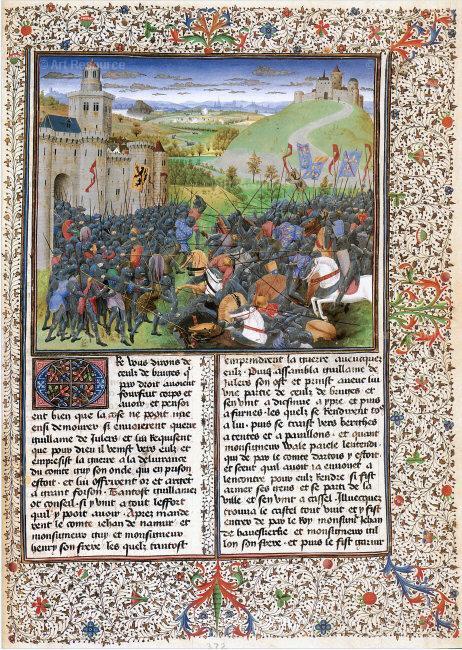 © Art Resource
Or vous dirons de
ceulx de bruges q̃
par droit avoient
fourfait corps et
avoir et penson
ent bien que la cose ne povit mie
ainsi demourer si envoierent querre
guillame de Julers et lui requisent
que pour dieu il venist vers eulx et
empresist la guerre a la delivrance
du conte Guy son oncle qui en prison
estoit · et lui offrirent or et argent
a grant foison · Tantost guillames
ot conseil · si y vint a tout l'effort
quil y povoit avoir · apres mande
rent le conte Jehan de namur · et
monsigneur guy · et monsigneur
henry son frere · les quelz tantost
emprindrent la guerre aveucquez
eulx · Puis assambla guillame de
Julers son ost et prinst aveuc lui
une partie de ceulx de bruges et
sen vint a diximue a ypre · et puis
a furnes · les quelz se rendirent to⁹
a lui · puis se traist vers berghes
a tentes et a pavillons · et quant
monsigneur Wale paiele lentendi ·
qui de par le conte dartois y estoit
et sceut quil avoit la envoiet a
lencontre pour eulx rendre si fist
armer ses gens et se parti de la
ville et sen vint a cassel · Illuecques
trouva le castel tout vuit et y fist
entrer de par le Roy monsigneur Jehan
de haveskerke et monsigneur gil
lon son frere · et puis le fist garnir
272